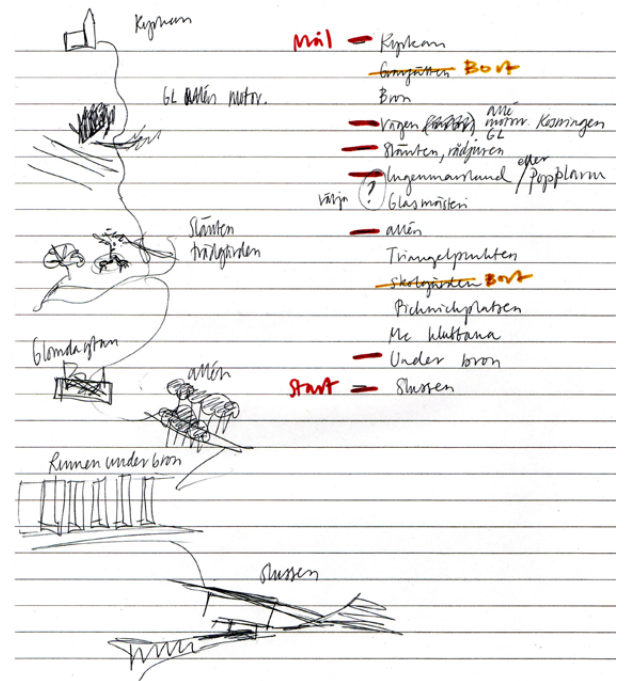 Kyrkan
GL allén motor.
Slänten
trädgården
Glömda ytan
allén
Rummen under bron
Slussen
Mål – Kyrkan
Bort
Bron
– Vägen allé motorv. GL Korsningen
– Slänten, rådjuren
– Ingenmansland / eller Popplarna
välja ? Glasmästeri
– allén
Triangelpunkten
Skolgården Bort
Picknickplatsen
Mc klubbarna
– Under bron
Start – Slussen